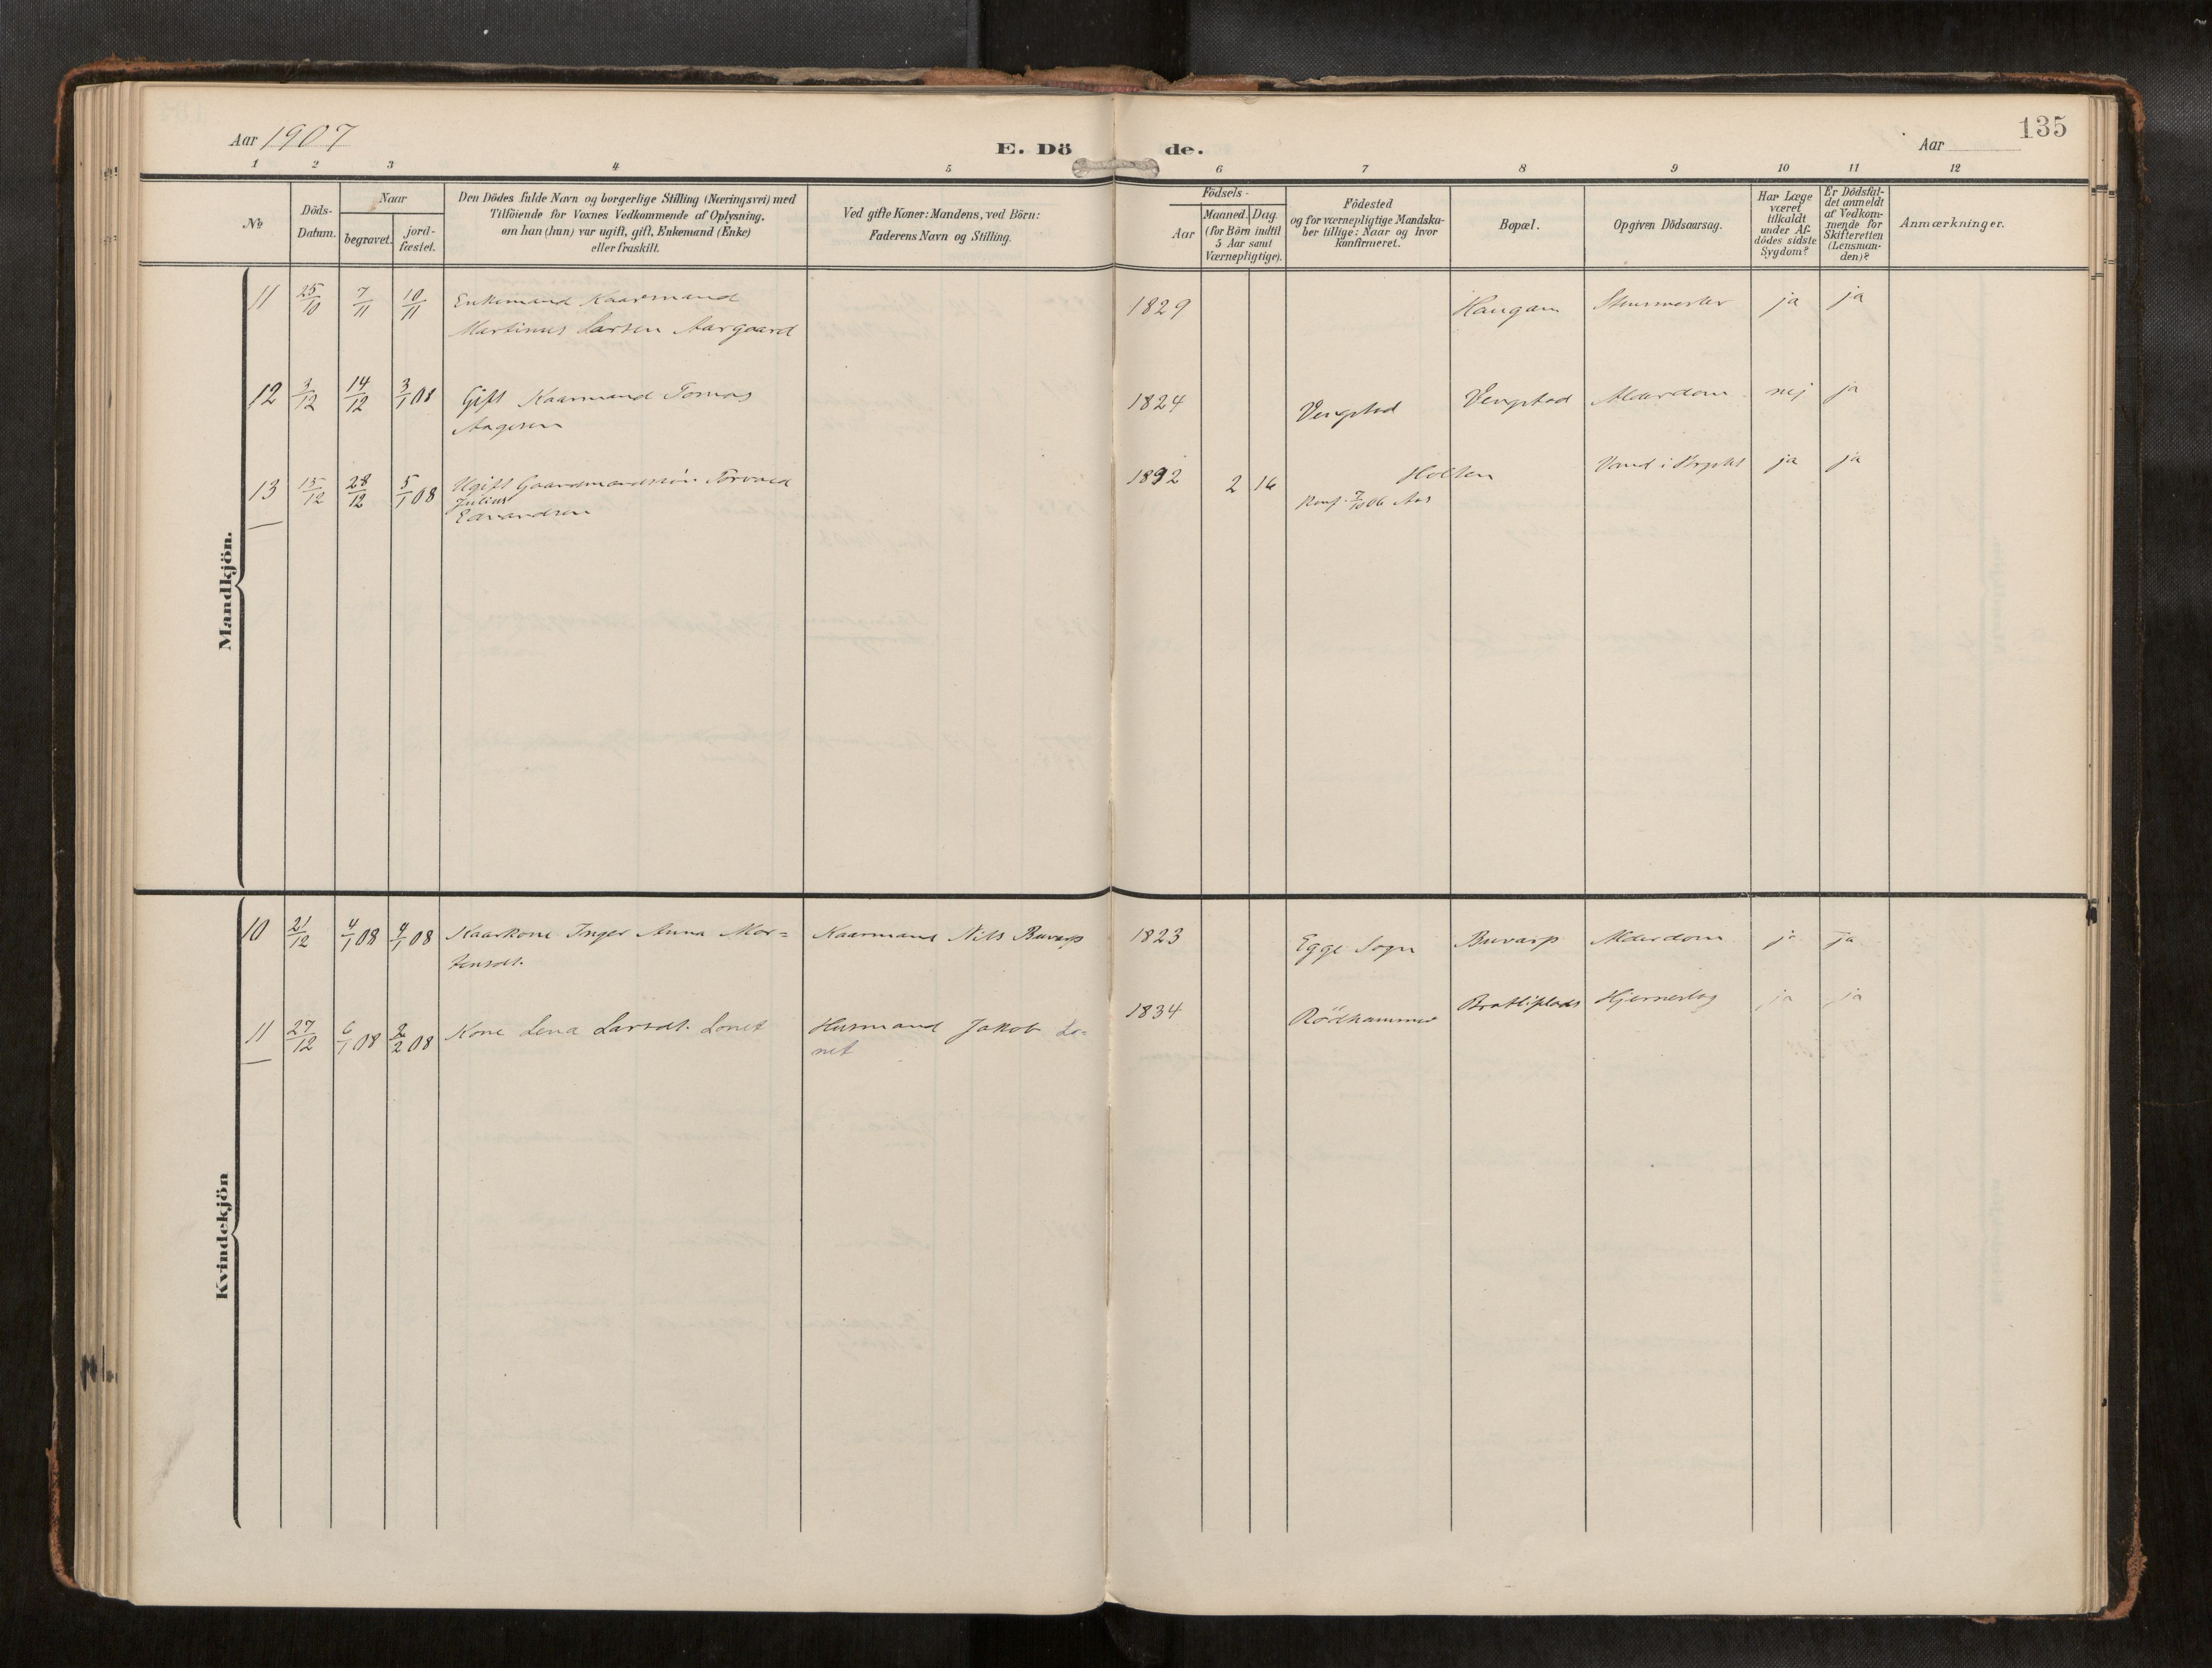 Aar 1907
E. Döde.
Aar
135
1 2 3 4 5 6 7 8 9 10 11 12
№
Döds-Datum.
Naar
begravet.
jord-fæstet.
Den Dödes fulde Navn og borgerlige Stilling (Næringsvei) med
Tilföiende for Voxnes Vedkommende af Oplysning,
om han (hun) var ugift, gift, Enkemand (Enke)
eller fraskilt.
Ved gifte Koner: Mandens, ved Börn:
Faderens Navn og Stilling.
Födsels-
Aar
Maaned. Dag.
(for Börn indtil
5 Aar samt
Værnepligtige).
Födested
og for værnepligtige Mandska-
ber tillige: Naar og hvor
konfirmeret.
Bopæl.
Opgiven Dödsaarsag.
Har Læge
været
tilkaldt
under Af-
dödes sidste
Sygdom?
Er Dödsfal-
det anmeldt
af Vedkom-
mende for
Skifteretten
(Lensman-
den)?
Anmærkninger.
Mandkjön.
11 25/10 7/11 10/11 Enkemand Kaarmand 1829 Haugan ja ja
Martinus Larsen Aargaard
12 3/12 14/12 3/1 08 Gift Kaarmand Tomas 1824 Vengstad Vengstad Alderdom nej ja
Aagesen
13 15/12 28/12 5/1 08 Ugift Gaardmandssön Torvald 1892 2 16 Holten Vand i ja ja
Julius
Edvardsen Konf. 7/10 06
Kvindekjön
10 21/12 4/1 08 4/1 08 Kaarkone Inger Anna Mor= Kaarmand Nils Buvarp 1823 Egge Sogn Buvarp Alderdom ja ja
tensdt.
11 27/12 6/1 08 2/2 08 Kone Lena Larsdt. Lönet Husmand Jakob Lö- 1834 Rödhammer Bratliplads Hjerneslag ja ja
net